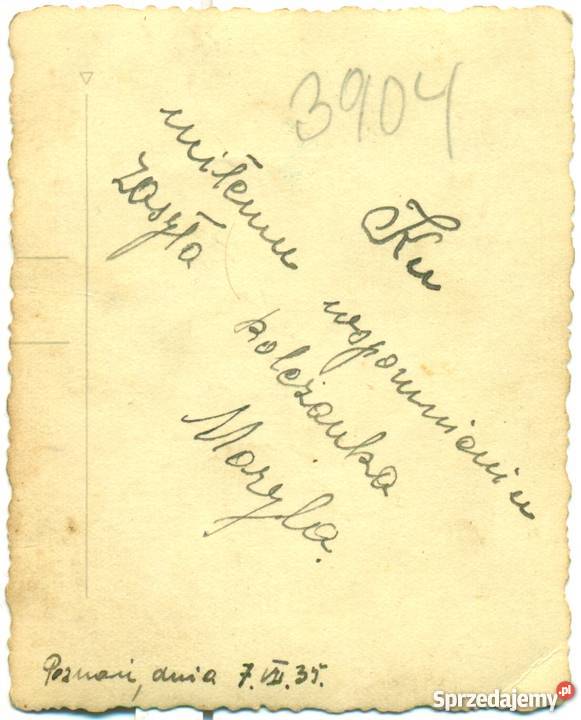 3904
Ku
miłemu wspomnieniu
zaszyła koleżanka
Maryla.
Poznań, dnia 7.VII.35.
Sprzedajemy.pl